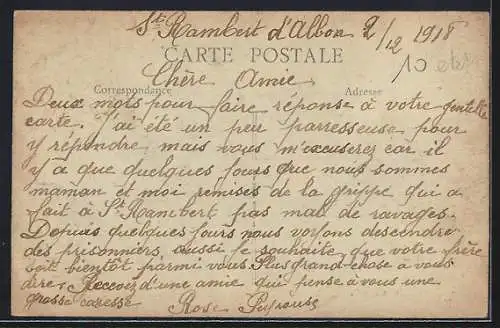 St Rambert d'Albon 2/12 1918
CARTE POSTALE
10 cts
Chère Amie
Correspondance Adresse
Deux mots pour faire réponse à votre gentille
carte, j'ai été un peu parresseuse pour
y répondre mais vous m'excuserez car il
y a que quelques jours que nous sommes
maman et moi remises de la grippe qui a
fait à St Rambert pas mal de ravages.
Depuis quelques jours nous voyons descendre
des prisonniers aussi je souhaite que votre frère
soit bientôt parmi vous Plus grand chose à vous
dire, Recevez d'une amie qui pense à vous une
grosse caresse
Rose